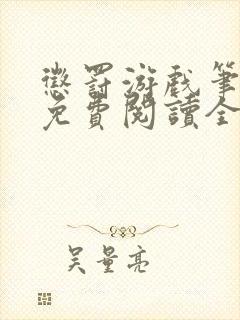 懲罰游戲筆
免費閱讀全
吴量亮